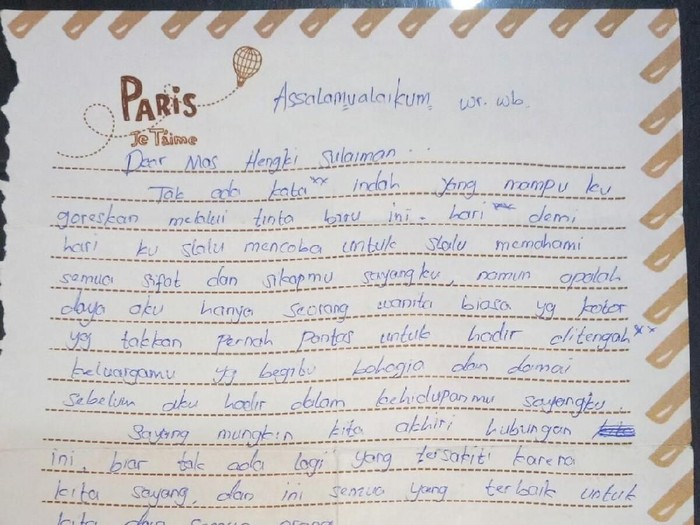 PARIS
Je T'aime
Assalamualaikum wr. wb.
Dear Mas Hengki Sulaiman...
Tak ada kata** indah yang mampu ku
goreskan melalui tinta biru ini. hari demi
hari ku slalu mencoba untuk slalu memahami
semua sifat dan sikapmu sayangku, namun apalah
daya aku hanya seorang wanita biasa yg kotor
yg takkan pernah pantas untuk hadir ditengah**
keluargamu yg begitu bahagia dan damai
sebelum aku hadir dalam kehidupanmu sayangku.
Sayang mungkin kita akhiri hubungan
ini, biar tak ada lagi yang tersakiti karena
kita sayang, dan ini semua yang terbaik untuk
kita dan semua orang